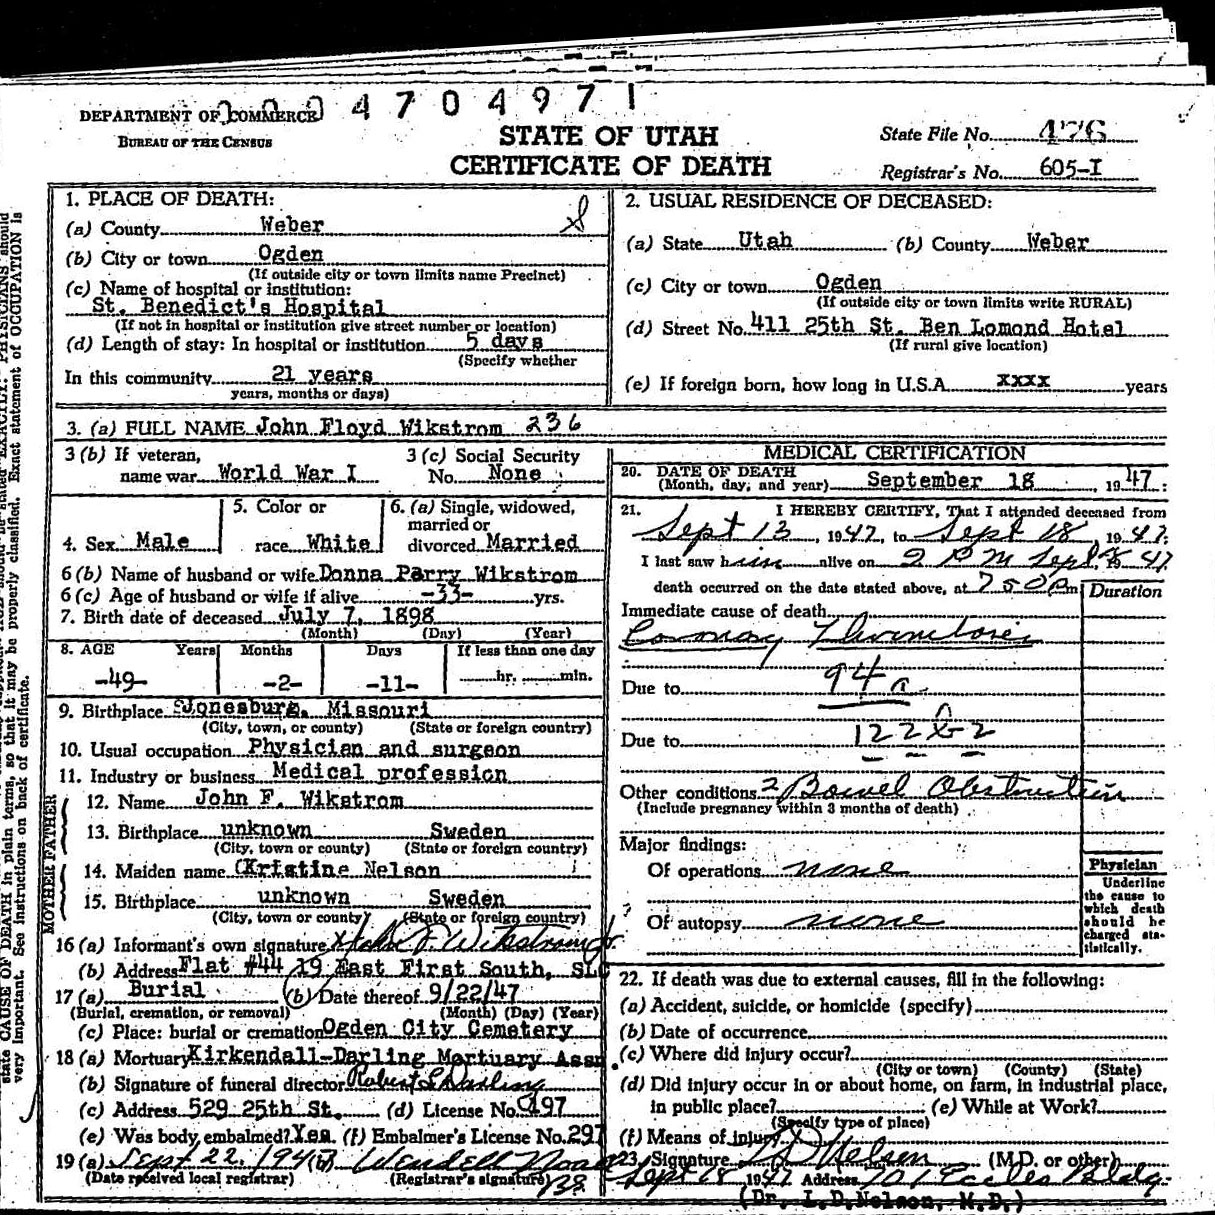 4 7 0 4 9 7 1
DEPARTMENT OF COMMERCE
BUREAU OF THE CENSUS
STATE OF UTAH
CERTIFICATE OF DEATH
State File No. 476
Registrar's No. 605-I
1. PLACE OF DEATH:
(a) County Weber
(b) City or town Ogden
(If outside city or town limits name Precinct)
(c) Name of hospital or institution:
St. Benedict's Hospital
(If not in hospital or institution give street number or location)
(d) Length of stay: In hospital or institution 5 days
(Specify whether
In this community 21 years
years, months or days)
2. USUAL RESIDENCE OF DECEASED:
(a) State Utah (b) County Weber
(c) City or town Ogden
(If outside city or town limits write RURAL)
(d) Street No. 411 25th St. Ben Lomond Hotel
(If rural give location)
(e) If foreign born, how long in U.S.A. xxxx years
3. (a) FULL NAME John Floyd Wikstrom 236
3 (b) If veteran, name war World War I
3 (c) Social Security No. None
4. Sex Male
5. Color or race White
6. (a) Single, widowed, married or divorced Married
6 (b) Name of husband or wife Donna Parry Wikstrom
6 (c) Age of husband or wife if alive -33- yrs.
7. Birth date of deceased July 7, 1898
(Month) (Day) (Year)
8. AGE Years Months Days If less than one day
-49- -2- -11- hr. min.
9. Birthplace Jonesburg, Missouri
(City, town, or county) (State or foreign country)
10. Usual occupation Physician and surgeon
11. Industry or business Medical profession
MOTHER FATHER
12. Name John F. Wikstrom
13. Birthplace unknown Sweden
(City, town or county) (State or foreign country)
14. Maiden name Kristine Nelson
15. Birthplace unknown Sweden
(City, town or county) (State or foreign country)
16 (a) Informant's own signature John F. Wikstrom Jr.
(b) Address Flat #44 19 East First South, SLC
17 (a) Burial (b) Date thereof 9/22/47
(Burial, cremation, or removal) (Month) (Day) (Year)
(c) Place: burial or cremation Ogden City Cemetery
18 (a) Mortuary Kirkendall-Darling Mortuary Assn.
(b) Signature of funeral director Robert L Darling
(c) Address 529 25th St. (d) License No. 497
(e) Was body embalmed? Yes (f) Embalmer's License No. 297
19 (a) Sept 22, 1947 (b) Wendell
(Date received local registrar) (Registrar's signature)
MEDICAL CERTIFICATION
20. DATE OF DEATH
(Month, day, and year) September 18 1947:
21. I HEREBY CERTIFY, That I attended deceased from
Sept 13, 1947, to Sept 18, 1947:
I last saw him alive on 2 PM Sept 18 1947
death occurred on the date stated above, at 7 50 Pm
Duration
Immediate cause of death
Coronary Thrombosis
94a
Due to
Due to 122 b-2
Other conditions 2 Bowel Obstruction
(Include pregnancy within 3 months of death)
Major findings:
Of operations none
Of autopsy none
Physician
Underline
the cause to
which death
should be
charged sta-
tistically.
22. If death was due to external causes, fill in the following:
(a) Accident, suicide, or homicide (specify)
(b) Date of occurrence
(c) Where did injury occur?
(City or town) (County) (State)
(d) Did injury occur in or about home, on farm, in industrial place,
in public place? (e) While at Work?
(Specify type of place)
(f) Means of injury
23. Signature L D Nelson (M.D. or other)
Sept 18 1947 Address 701 Eccles Bldg.
(Dr. L.D.Nelson, M.D.)
state CAUSE OF DEATH in plain terms, so that it may be properly classified. Exact statement of OCCUPATION is
very important. See instructions on back of certificate.